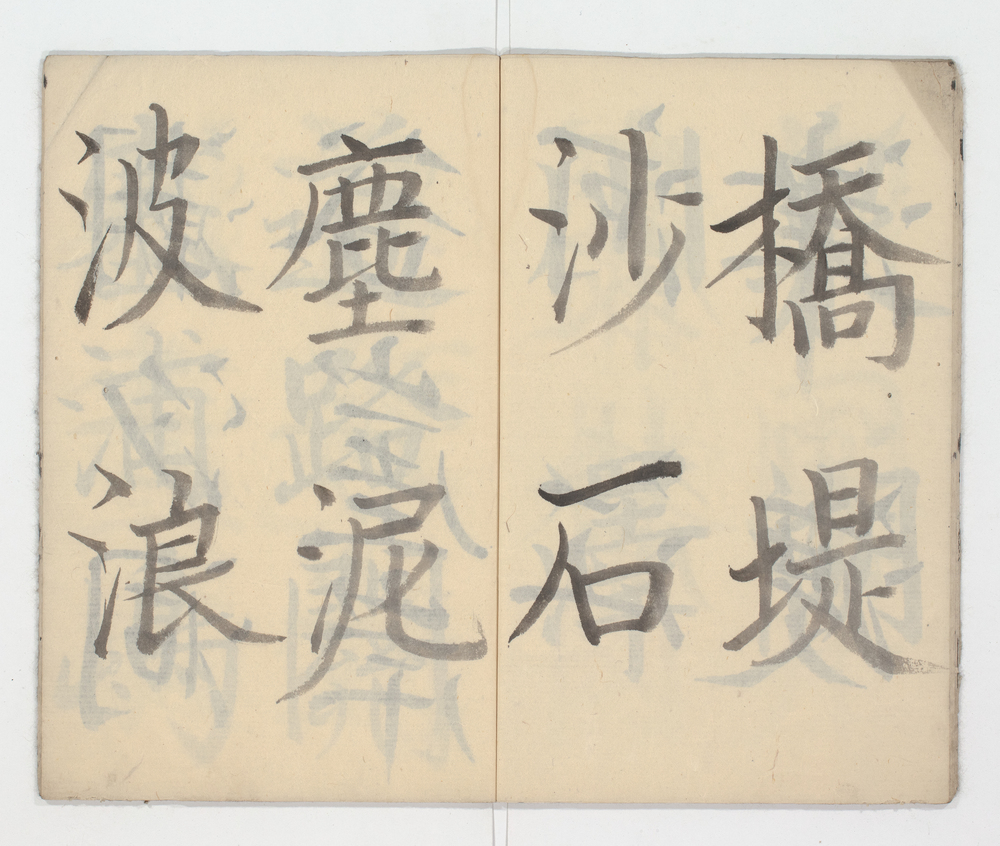 橋堤
沙石
塵泥
波浪